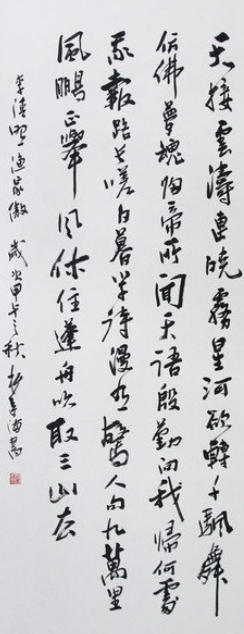 天接雲濤連曉霧星河欲轉千颿舞
仿佛夢魂歸帝所聞天語殷勤問我歸何處
我報路長嗟日暮學詩漫有驚人句九萬里
風鵬正舉風休住蓬舟吹取三山去
李清照漁家傲 歲次甲午之秋